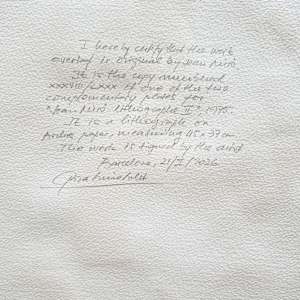 I hereby certify that the work
overleaf is original by Joan Miró.
It is the copy numbered
XXXVIII/LXXX of one of the two
complementary plates for
"Joan Miró Lithographs II" 1975.
It is a lithograph on
paper, measuring 45 x 37 cm
This work is signed by the artist
Barcelona, 21/I/2026